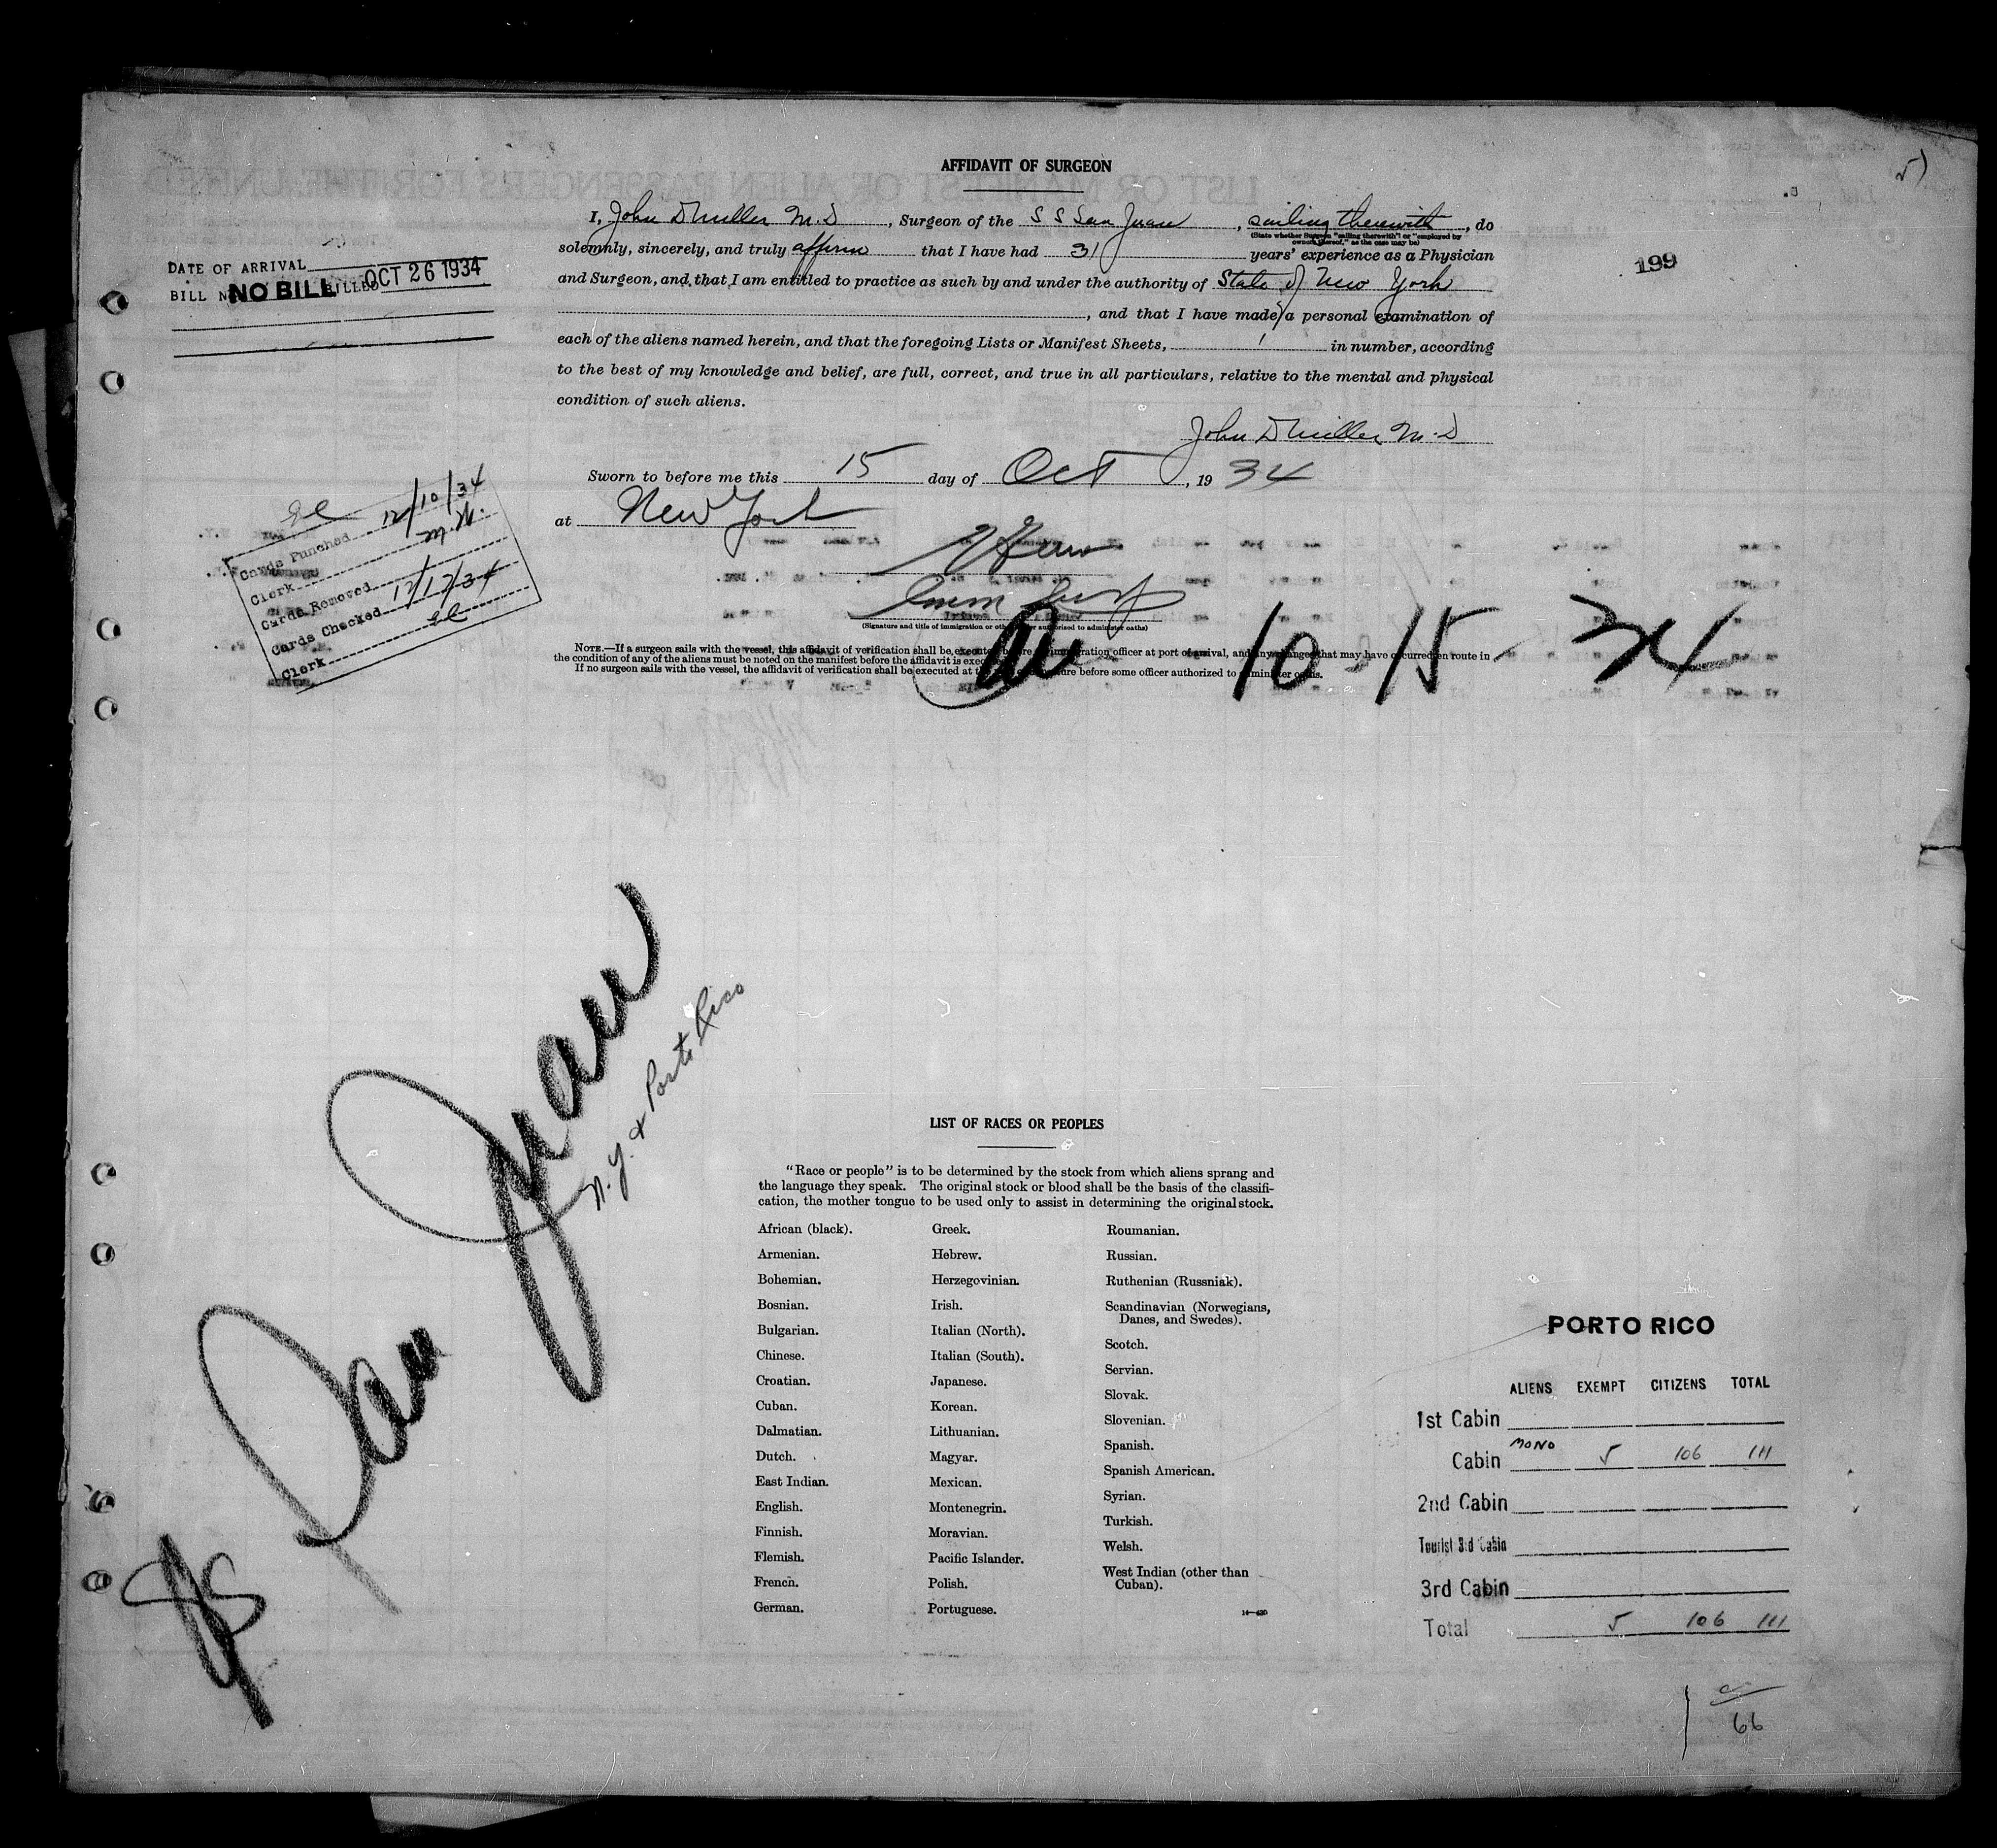 AFFIDAVIT OF SURGEON
I, John D Miller M.D, Surgeon of the S S San Juan, sailing therewith, do
(State whether Surgeon "sailing therewith" or "employed by
owners thereof," as the case may be)
solemnly, sincerely, and truly affirm that I have had 31 years' experience as a Physician
and Surgeon, and that I am entitled to practice as such by and under the authority of State of New York
, and that I have made a personal examination of
each of the aliens named herein, and that the foregoing Lists or Manifest Sheets, 1 in number, according
to the best of my knowledge and belief, are full, correct, and true in all particulars, relative to the mental and physical
condition of such aliens.
John D Miller M.D
Sworn to before me this 15 day of Oct, 1934
at New York
(Signature and title of immigration or other officer authorized to administer oaths)
10-15-34
NOTE.—If a surgeon sails with the vessel, this affidavit of verification shall be executed before immigration officer at port of arrival, and any changes that may have occurred en route in
the condition of any of the aliens must be noted on the manifest before the affidavit is executed
If no surgeon sails with the vessel, the affidavit of verification shall be executed at before some officer authorized to administer oaths.
DATE OF ARRIVAL OCT 26 1934
BILL NO BILL BILLED
199
5
Cards Punched 12/10/34
Clerk M.W.
Cards Removed
Cards Checked 12/17/34
Clerk
SS San Juan
N.Y. & Porto Rico
LIST OF RACES OR PEOPLES
"Race or people" is to be determined by the stock from which aliens sprang and
the language they speak. The original stock or blood shall be the basis of the classifi-
cation, the mother tongue to be used only to assist in determining the original stock.
African (black).
Armenian.
Bohemian.
Bosnian.
Bulgarian.
Chinese.
Croatian.
Cuban.
Dalmatian.
Dutch.
East Indian.
English.
Finnish.
Flemish.
French.
German.
Greek.
Hebrew.
Herzegovinian.
Irish.
Italian (North).
Italian (South).
Japanese.
Korean.
Lithuanian.
Magyar.
Mexican.
Montenegrin.
Moravian.
Pacific Islander.
Polish.
Portuguese.
Roumanian.
Russian.
Ruthenian (Russniak).
Scandinavian (Norwegians,
Danes, and Swedes).
Scotch.
Servian.
Slovak.
Slovenian.
Spanish.
Spanish American.
Syrian.
Turkish.
Welsh.
West Indian (other than
Cuban).
14—430
PORTO RICO
ALIENS EXEMPT CITIZENS TOTAL
1st Cabin
MONO
Cabin 5 106 111
2nd Cabin
Tourist 3rd Cabin
3rd Cabin
Total 5 106 111
66